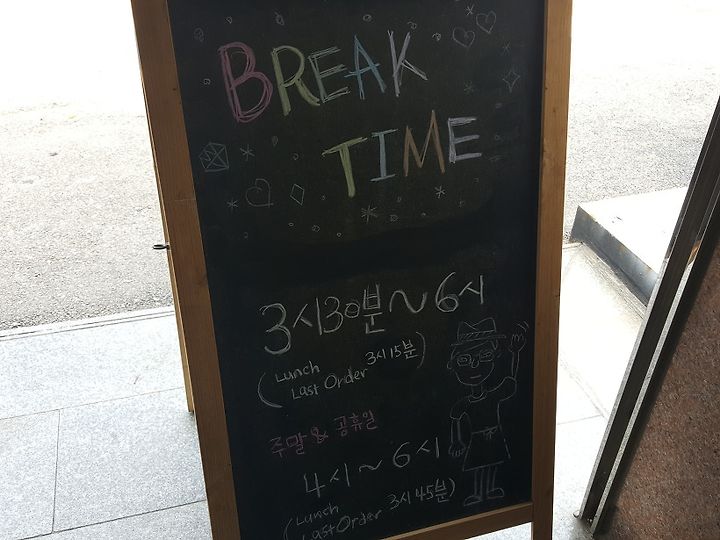 BREAK
TIME
3시30분~6시
(Lunch
Last Order 3시15분)
주말 & 공휴일
4시~6시
(Lunch
Last Order 3시45분)